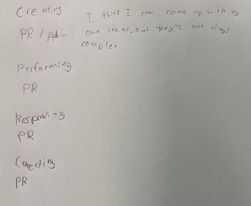 Creating
PR / Ad
I think I can come up with my
own ideas, but not always
complex
Performing
PR
Responding
PR
Connecting
PR